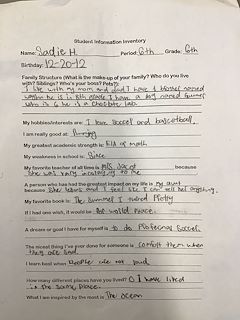 Student Information Inventory
Name: Sadie H. Period: 6th Grade: 6th
Birthday: 12-20-12
Family Structure (What is the make-up of your family? Who do you live
with? Siblings? Who's your boss? Pets?):
I live with my mom and dad I have 1 brother named
who he is in 8th grade I have a dog named
who is 6 he is a chocolate lab.
My hobbies/interests are: I love soccer and basketball.
I am really good at:
My greatest academic strength is: kind of math
My weakness in school is:
My favorite teacher of all time is Mrs. because
she was very to me
A person who has had the greatest impact on my life is my aunt
because she and I feel like I can tell her anything.
My favorite book is: The Summer I turned Pretty
If I had one wish, it would be world peace.
A dream or goal I have for myself is to do Profesnal Soccer.
The nicest thing I've ever done for someone is comfort them when
they are sad.
I learn best when people are not loud
How many different places have you lived? 0 I have lived
in the same place.
What I am inspired by the most is The ocean